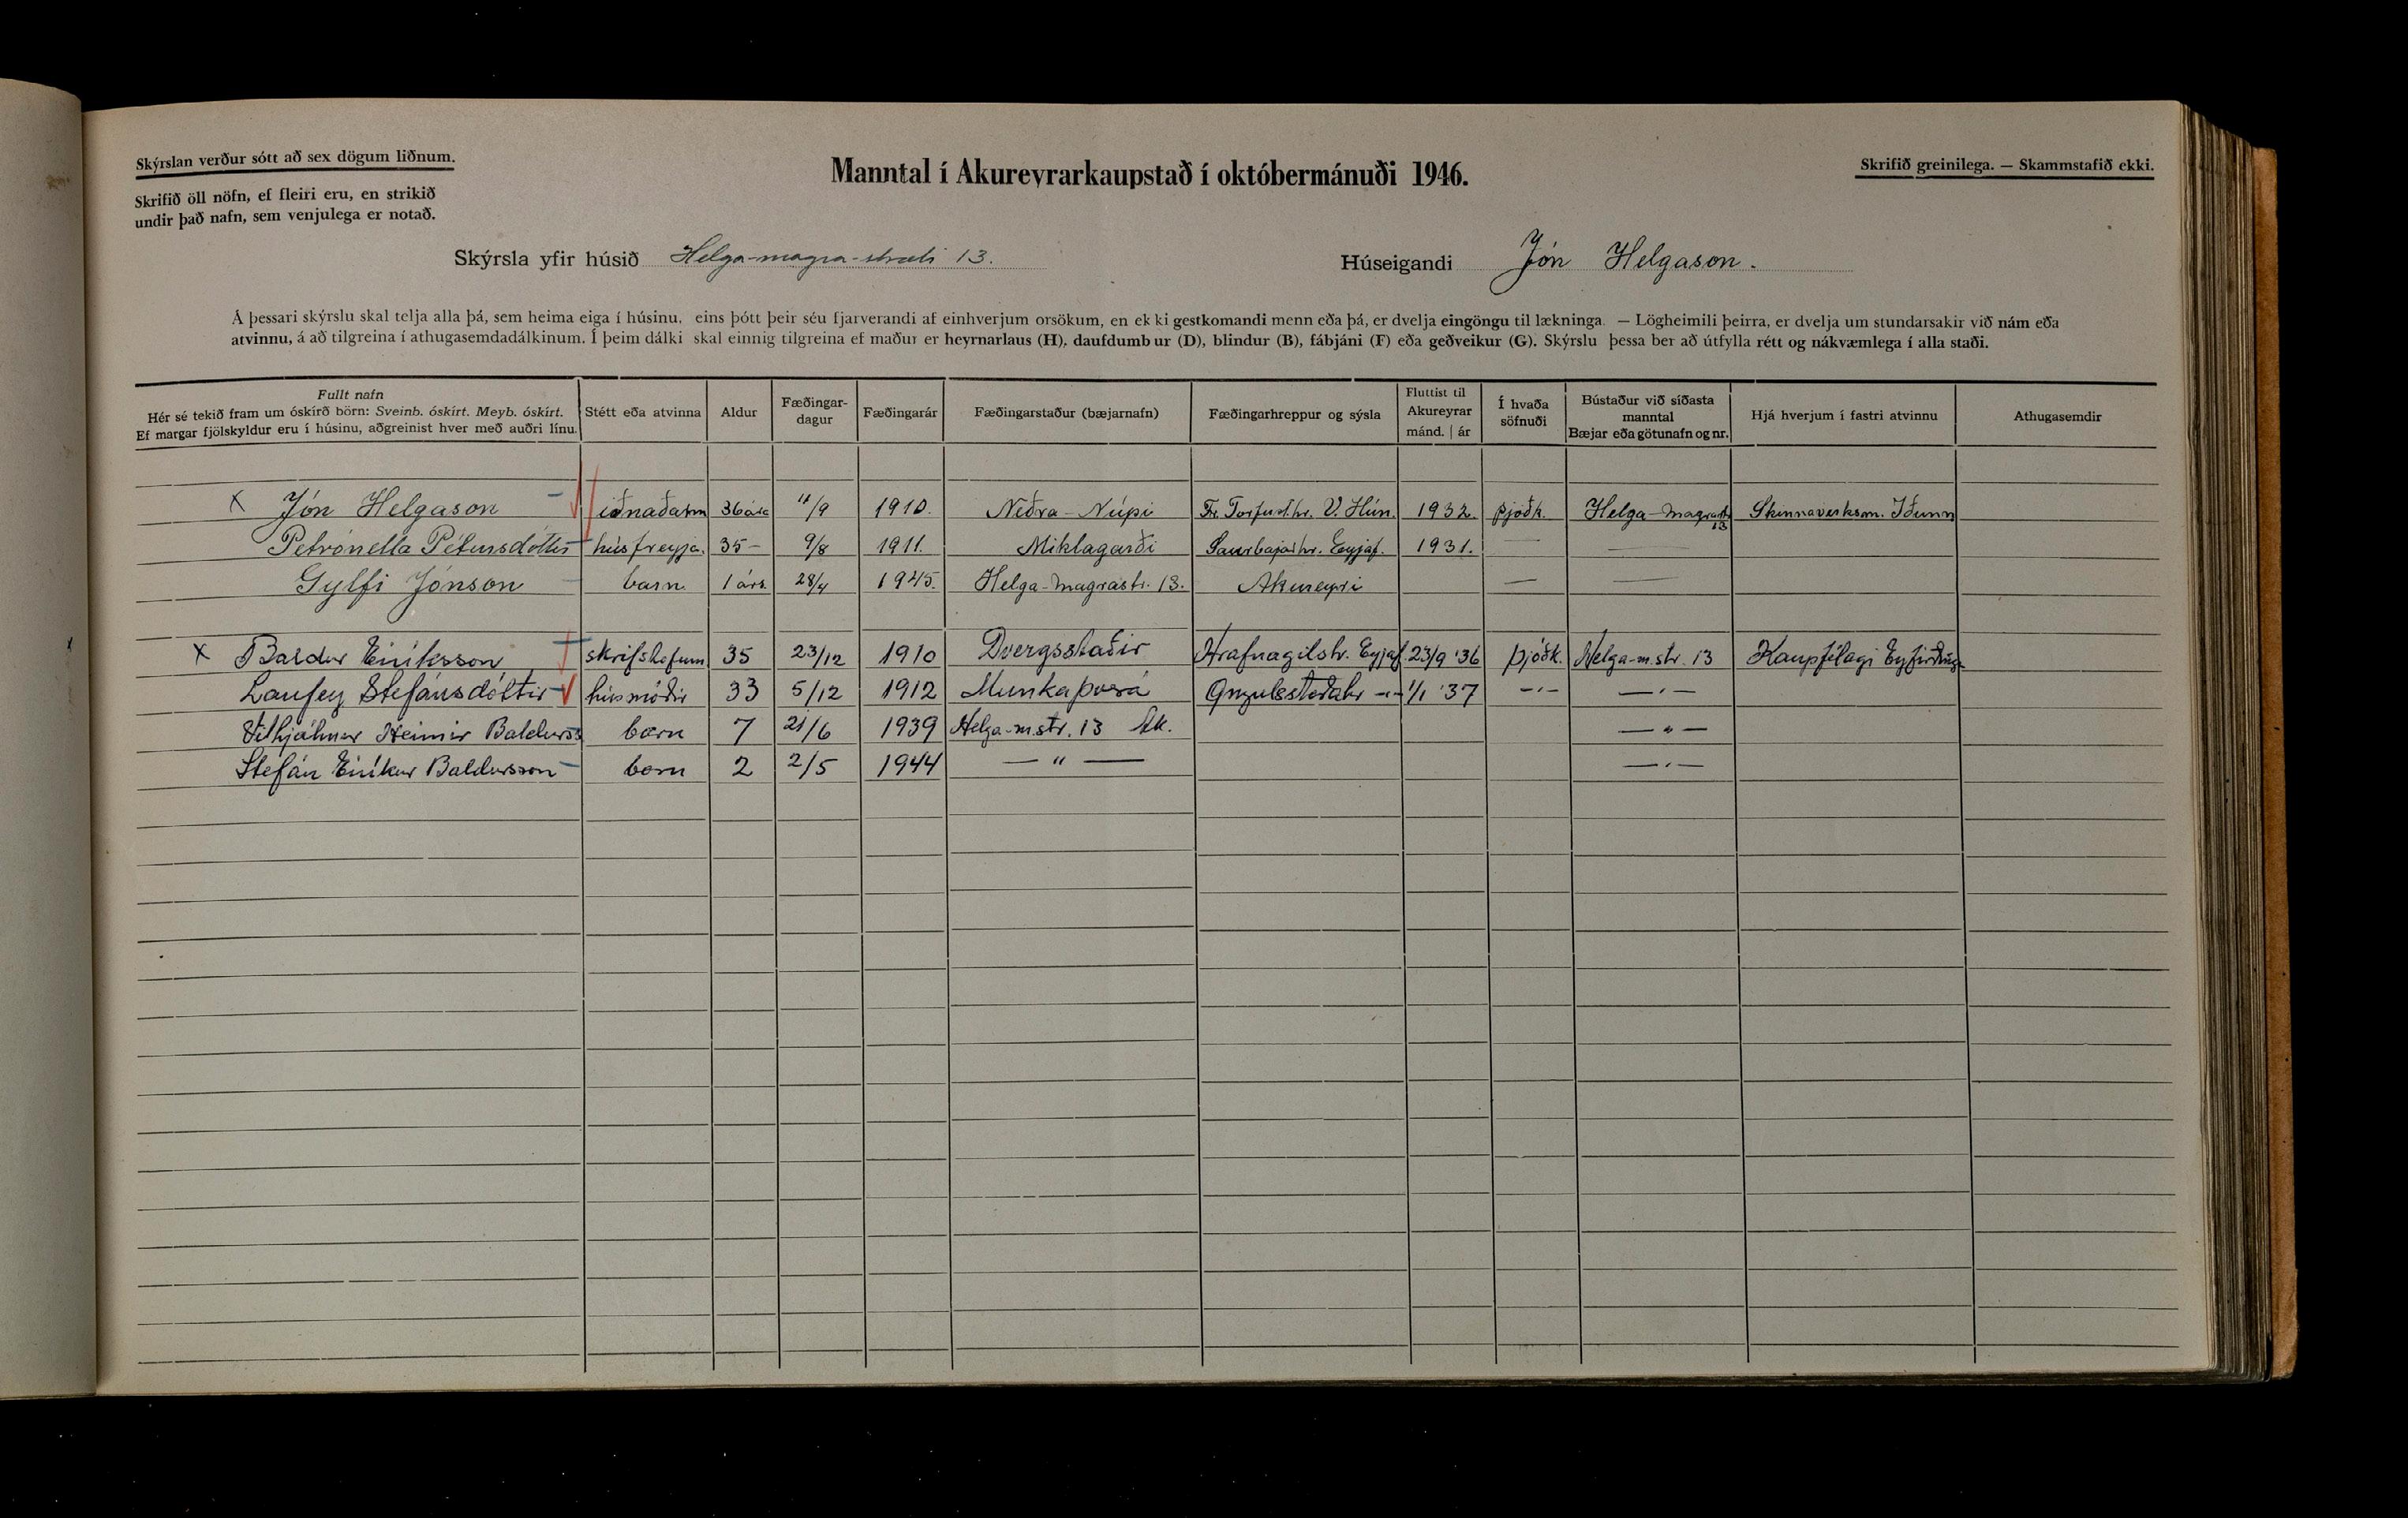 Skýrslan verður sótt að sex dögum liðnum.
Skrifið öll nöfn, ef fleiri eru, en strikið
undir það nafn, sem venjulega er notað.
Manntal í Akureyrarkaupstað í októbermánuði 1946.
Skrifið greinilega. — Skammstafið ekki.
Skýrsla yfir húsið Helga-magra-stræti 13.
Húseigandi Jón Helgason.
Á þessari skýrslu skal telja alla þá, sem heima eiga í húsinu, eins þótt þeir séu fjarverandi af einhverjum orsökum, en ek ki gestkomandi menn eða þá, er dvelja eingöngu til lækninga. — Lögheimili þeirra, er dvelja um stundarsakir við nám eða
atvinnu, á að tilgreina í athugasemdadálkinum. Í þeim dálki skal einnig tilgreina ef maður er heyrnarlaus (H), daufdumb ur (D), blindur (B), fábjáni (F) eða geðveikur (G). Skýrslu þessa ber að útfylla rétt og nákvæmlega í alla staði.
Fullt nafn
Hér sé tekið fram um óskírð börn: Sveinb. óskírt. Meyb. óskírt.
Ef margar fjölskyldur eru í húsinu, aðgreinist hver með auðri línu.
Stétt eða atvinna
Aldur
Fæðingar-
dagur
Fæðingarár
Fæðingarstaður (bæjarnafn)
Fæðingarhreppur og sýsla
Fluttist til
Akureyrar
mánd. | ár
Í hvaða
söfnuði
Bústaður við síðasta
manntal
Bæjar eða götunafn og nr.
Hjá hverjum í fastri atvinnu
Athugasemdir
x Jón Helgason iðnaðarm 36 ára 11/9 1910. Neðra-Núpi Fr. Torfust.hr. V. Hún. 1932. þjóðk. Helga-Magrastr 13 Skinnaverksm. Iðunn
Petrónella Pétursdóttir húsfreyja. 35 - 9/8 1911. Miklagarði Saurbæjarhr. Eyjaf. 1931. — —
Gylfi Jónson barn 1 árs 28/4 1945. Helga-Magrastr. 13. Akureyri — —
x Baldur Eiríksson skrifstofum. 35 23/12 1910 Dvergsstaðir Hrafnagilshr. Eyjaf. 23/9 '36 þjóðk. Helga-m.str. 13 Kaupfélagi Eyfirðinga
Laufey Stefánsdóttir húsmóðir 33 5/12 1912 Munkaþverá Öngulsstaðahr -"- 1/1 '37 -"- -"-
Vilhjálmur Heimir Baldurss barn 7 21/6 1939 Helga-m.str. 13 Ak. -"-
Stefán Eiríkur Baldursson barn 2 2/5 1944 — " — -"-